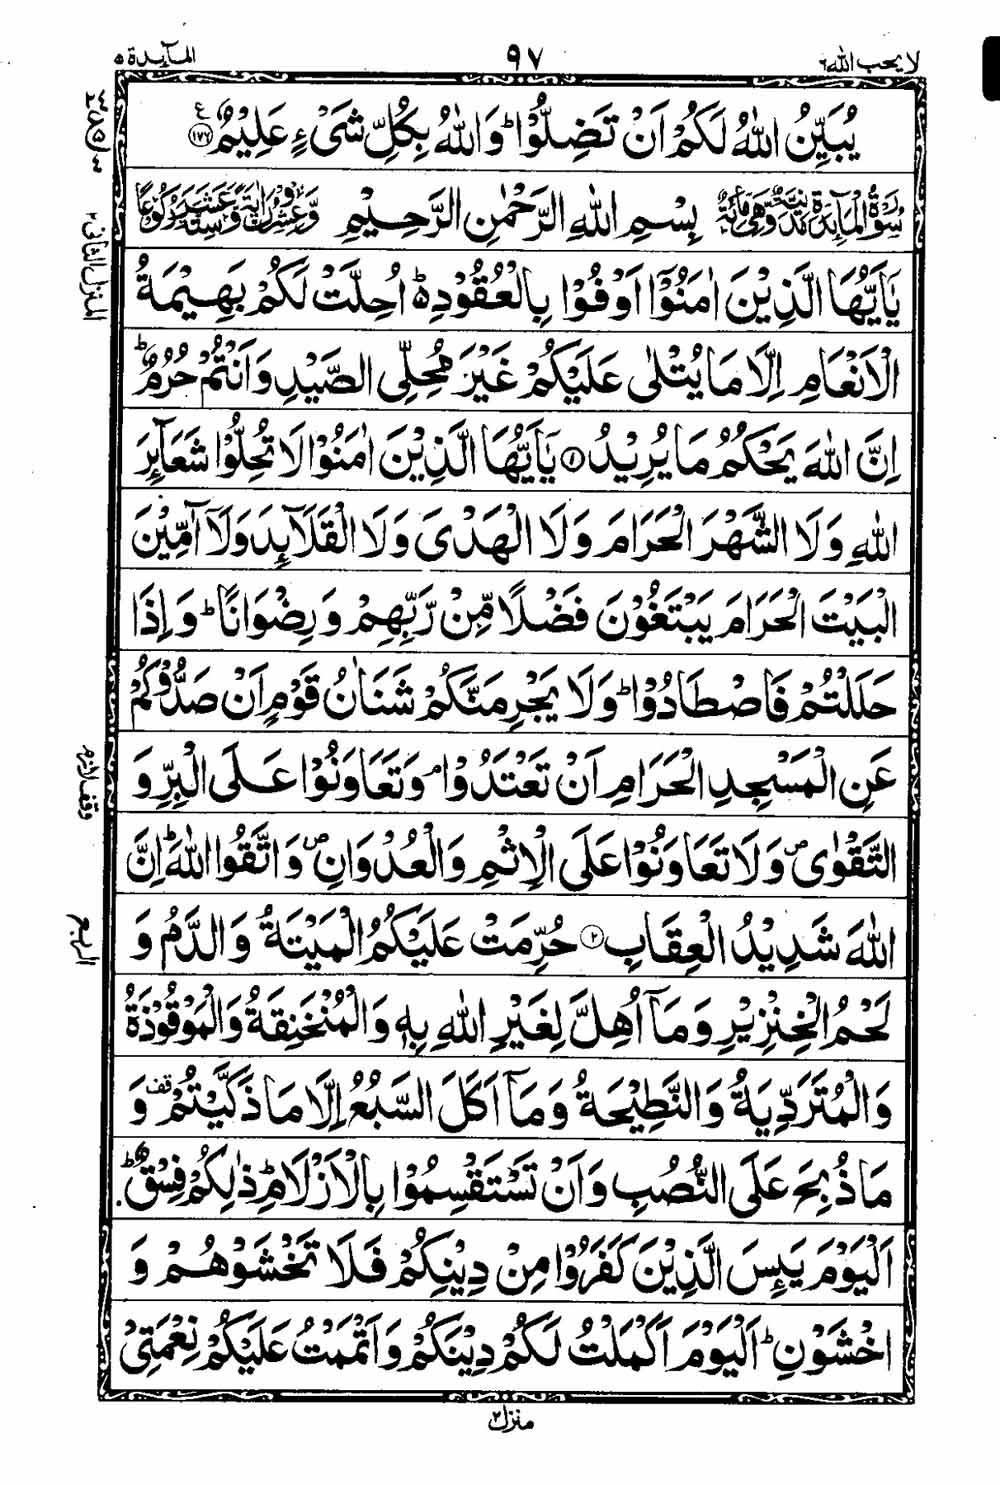 لا یحب الله ٦
٩٧
المآئدة ٥
يُبَيِّنُ اللّٰهُ لَكُمْ اَنْ تَضِلُّوْا ؕ وَاللّٰهُ بِكُلِّ شَیْءٍ عَلِيْمٌ ﴿۱۷۶﴾ ع
سُوْرَةُ الْمَآئِدَةِ مَدَنِيَّةٌ وَّهِیَ مِائَةٌ بِسْمِ اللهِ الرَّحْمٰنِ الرَّحِيْمِ وَّعِشْرُوْنَ اٰيَةً وَّسِتَّةَ عَشَرَ رُكُوْعًا
يٰۤاَيُّهَا الَّذِيْنَ اٰمَنُوْۤا اَوْفُوْا بِالْعُقُوْدِ ؕ اُحِلَّتْ لَكُمْ بَهِيْمَةُ
الْاَنْعَامِ اِلَّا مَا يُتْلٰی عَلَيْكُمْ غَيْرَ مُحِلِّی الصَّيْدِ وَاَنْتُمْ حُرُمٌ ؕ
اِنَّ اللّٰهَ يَحْكُمُ مَا يُرِيْدُ ﴿۱﴾ يٰۤاَيُّهَا الَّذِيْنَ اٰمَنُوْا لَا تُحِلُّوْا شَعَآئِرَ
اللّٰهِ وَلَا الشَّهْرَ الْحَرَامَ وَلَا الْهَدْیَ وَلَا الْقَلَآئِدَ وَلَاۤ آمِّيْنَ
الْبَيْتَ الْحَرَامَ يَبْتَغُوْنَ فَضْلًا مِّنْ رَّبِّهِمْ وَرِضْوَانًا ؕ وَاِذَا
حَلَلْتُمْ فَاصْطَادُوْا ؕ وَلَا يَجْرِمَنَّكُمْ شَنَاٰنُ قَوْمٍ اَنْ صَدُّوْكُمْ
عَنِ الْمَسْجِدِ الْحَرَامِ اَنْ تَعْتَدُوْا ۘ وَتَعَاوَنُوْا عَلَی الْبِرِّ وَ
التَّقْوٰی ۪ وَلَا تَعَاوَنُوْا عَلَی الْاِثْمِ وَالْعُدْوَانِ ۪ وَاتَّقُوا اللّٰهَ ؕ اِنَّ
اللّٰهَ شَدِيْدُ الْعِقَابِ ﴿۲﴾ حُرِّمَتْ عَلَيْكُمُ الْمَيْتَةُ وَالدَّمُ وَ
لَحْمُ الْخِنْزِيْرِ وَمَاۤ اُهِلَّ لِغَيْرِ اللّٰهِ بِهٖ وَالْمُنْخَنِقَةُ وَالْمَوْقُوْذَةُ
وَالْمُتَرَدِّيَةُ وَالنَّطِيْحَةُ وَمَاۤ اَكَلَ السَّبُعُ اِلَّا مَا ذَكَّيْتُمْ قف وَ
مَا ذُبِحَ عَلَی النُّصُبِ وَاَنْ تَسْتَقْسِمُوْا بِالْاَزْلَامِ ؕ ذٰلِكُمْ فِسْقٌ ؕ
اَلْيَوْمَ يَئِسَ الَّذِيْنَ كَفَرُوْا مِنْ دِيْنِكُمْ فَلَا تَخْشَوْهُمْ وَ
اخْشَوْنِ ؕ اَلْيَوْمَ اَكْمَلْتُ لَكُمْ دِيْنَكُمْ وَاَتْمَمْتُ عَلَيْكُمْ نِعْمَتِیْ
المنزل الثانی ۲
وقف لازم
الربع
منزل ۲